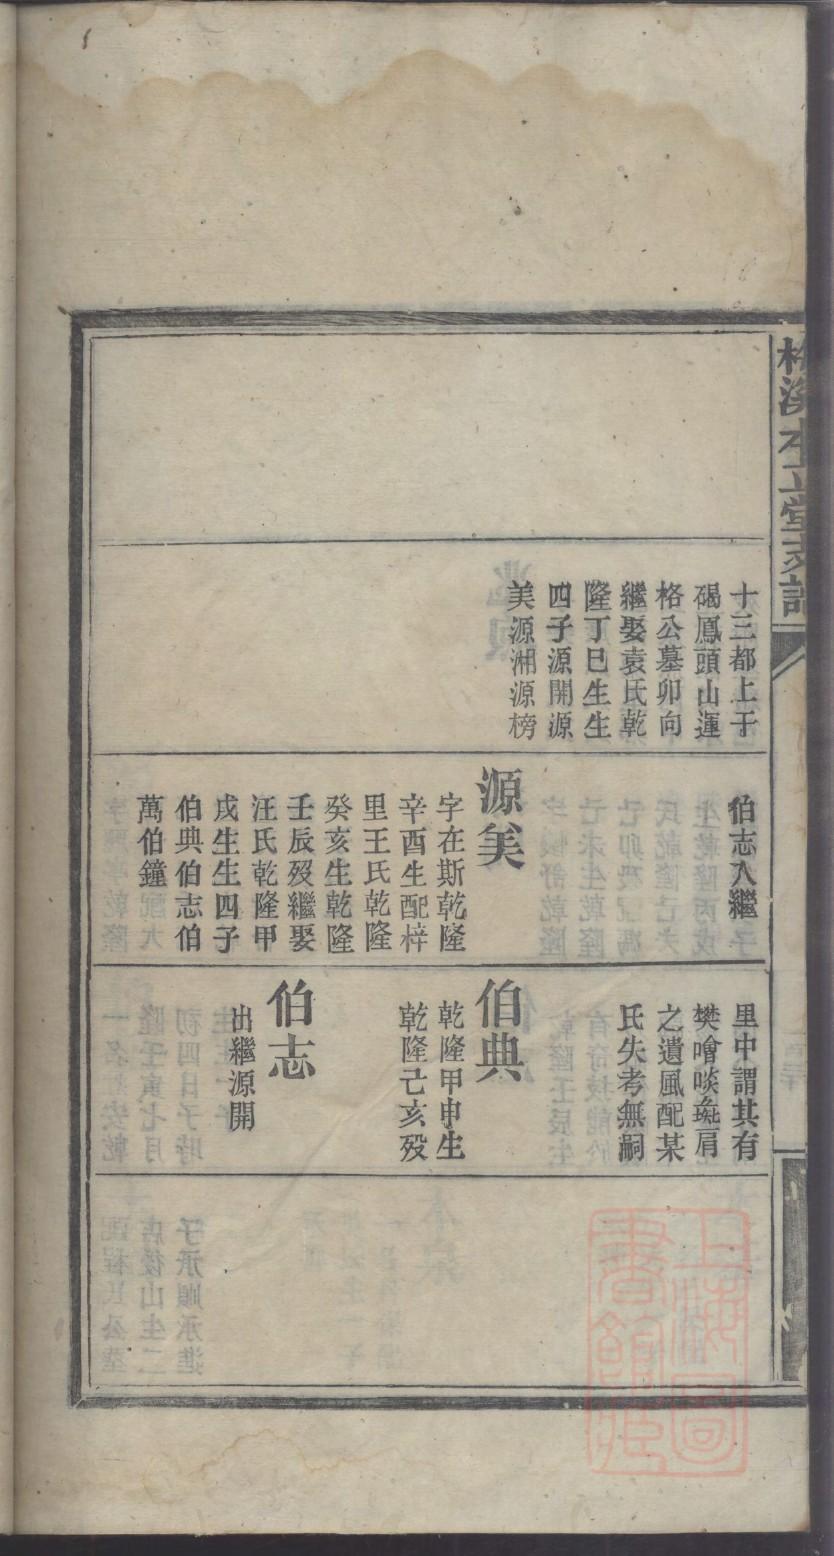 十三都上于
碣鳳頭山運
格公墓卯向
繼娶袁氏乾
隆丁巳生生
四子源開源
美源湘源榜
伯志入繼
源美
字在斯乾隆
辛酉生配梓
里王氏乾隆
癸亥生乾隆
壬辰歿繼娶
汪氏乾隆甲
戌生生四子
伯典伯志伯
萬伯鐘
里中謂其有
樊噲啖彘肩
之遺風配某
氏失考無嗣
伯典
乾隆甲申生
乾隆己亥歿
伯志
出繼源開
上海圖
書館藏